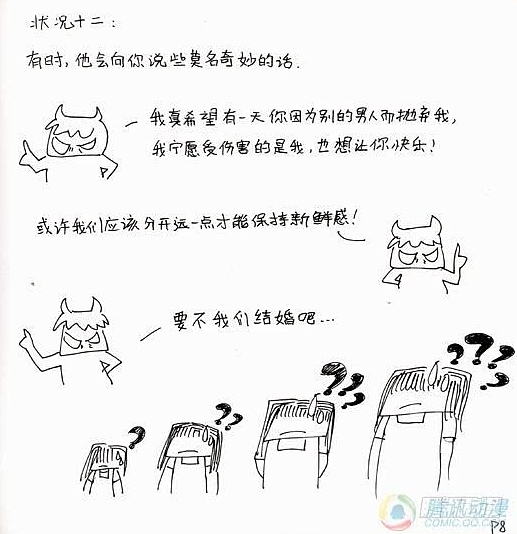 状况十二:
有时,他会向你说些莫名奇妙的话.
我真希望有一天你因为别的男人而抛弃我,
我宁愿受伤害的是我,也想让你快乐!
或许我们应该分开远一点才能保持新鲜感!
要不我们结婚吧...
?
??
???
????
腾讯动漫
COMIC.QQ.COM
P8